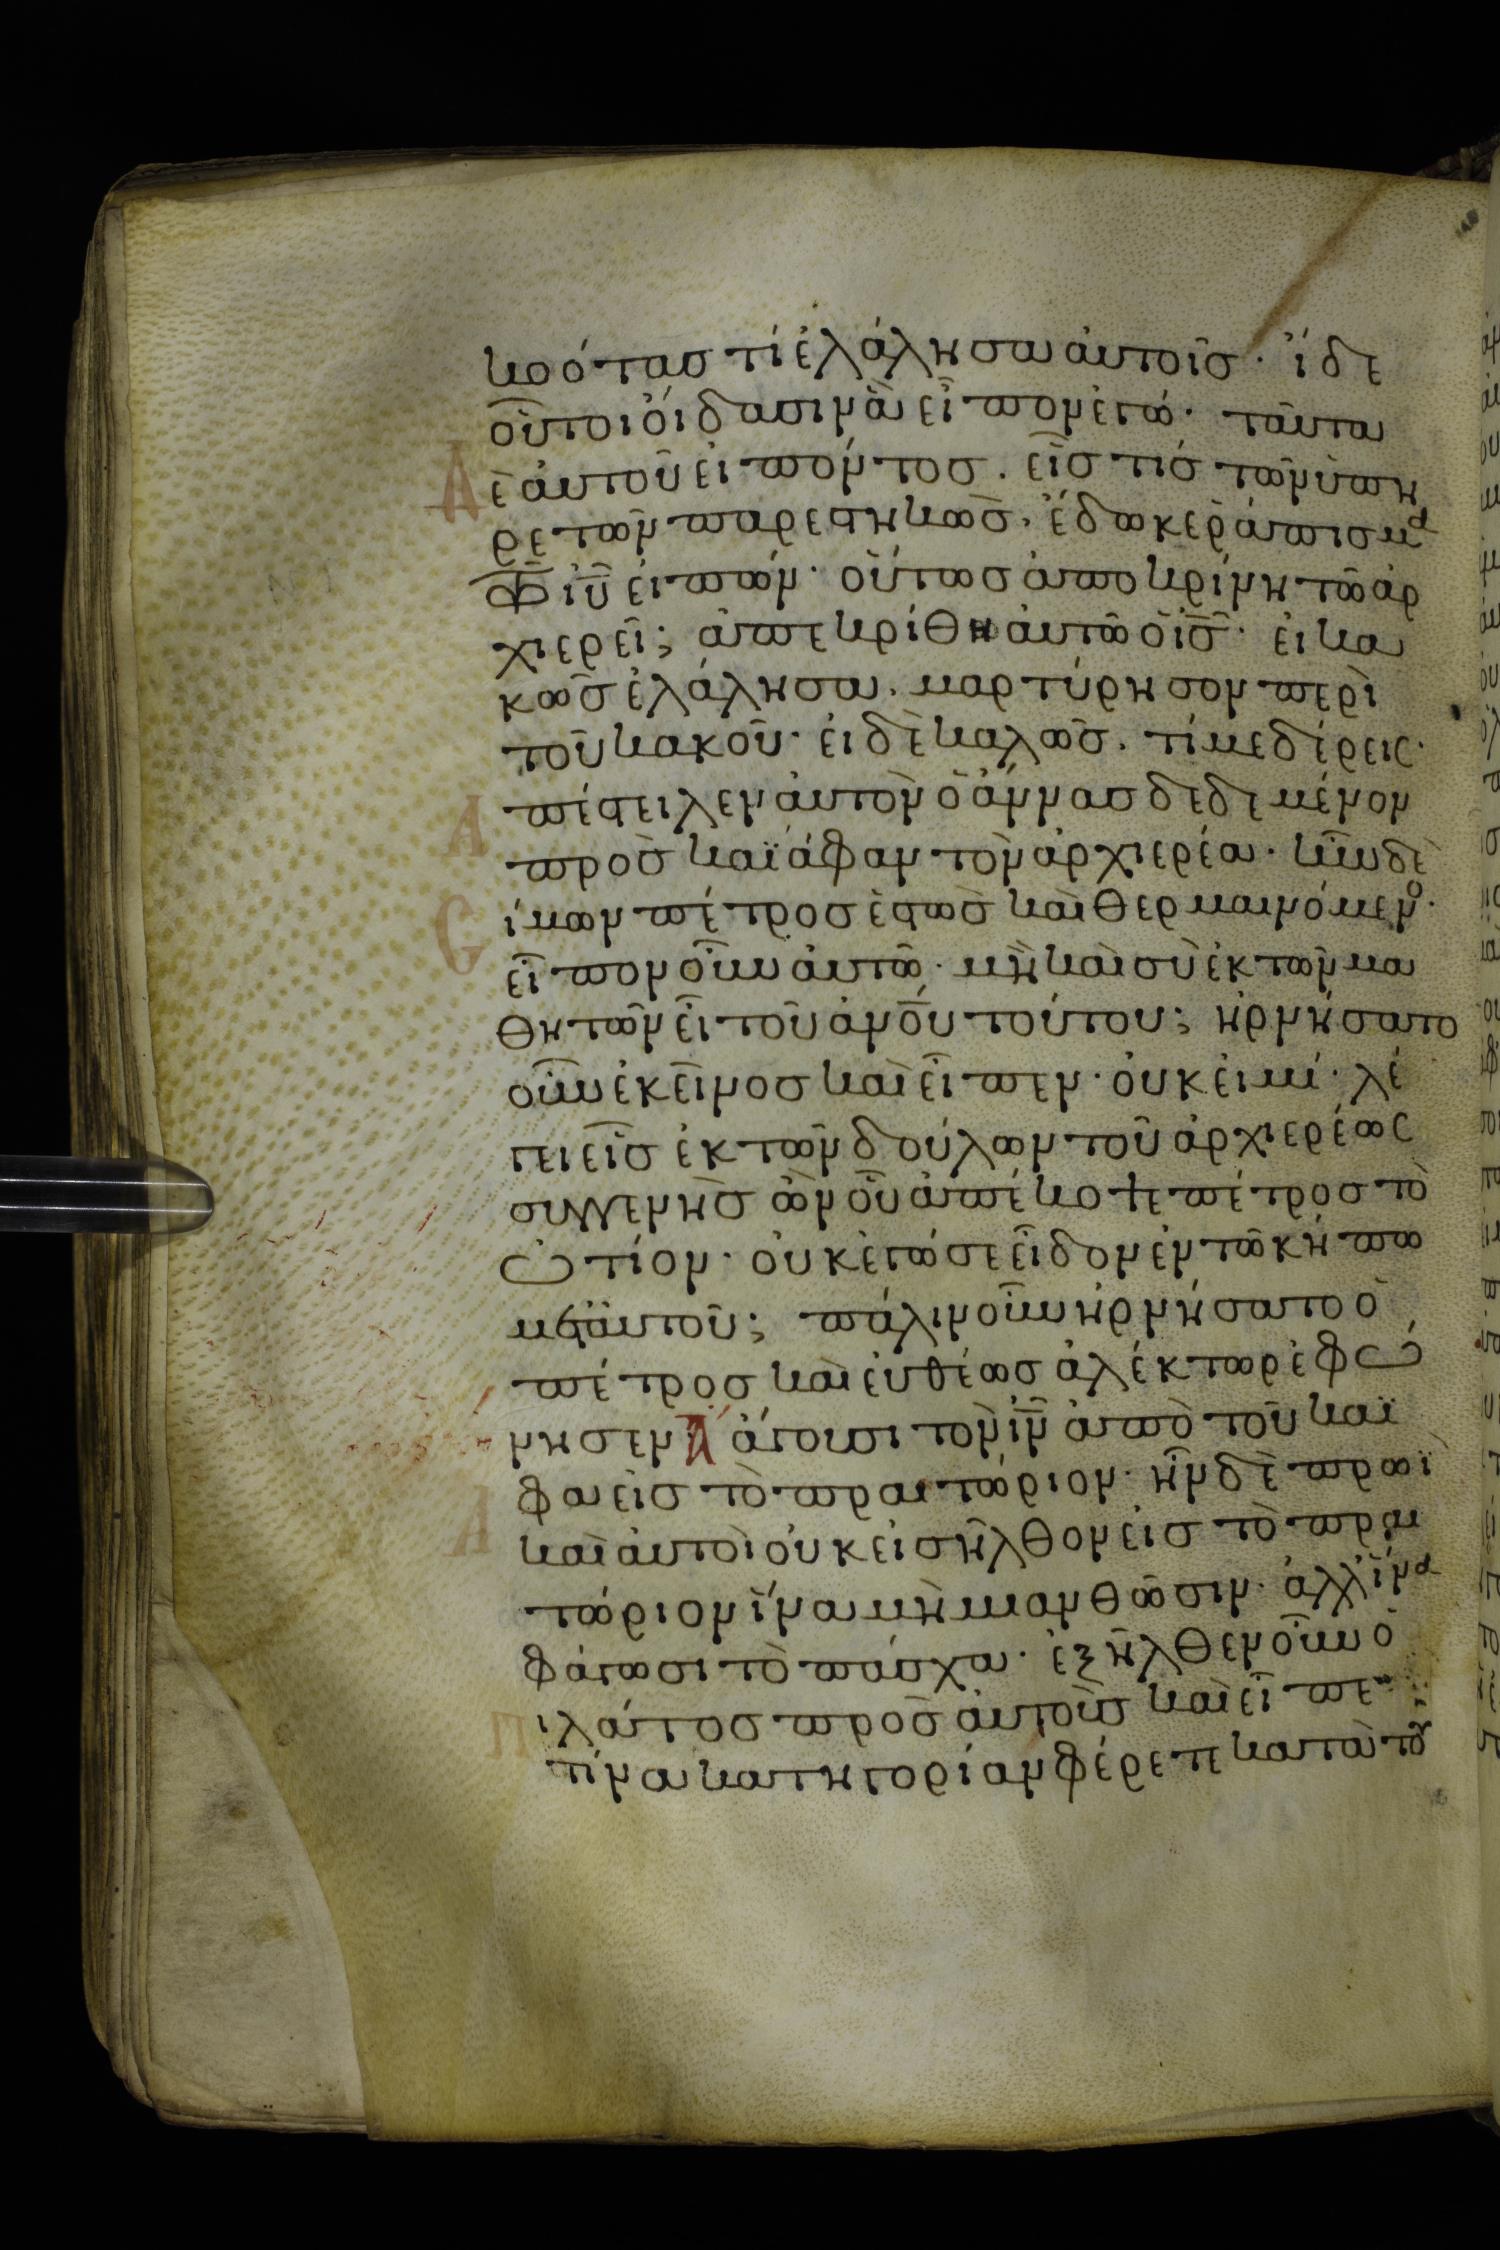 κοότας τί ἐλάλησα αὐτοῖς· ἴδε
οὗτοι ὀίδασιν ἃ εἶπον ἐγώ· ταῦτα
Δ ὲ ἀυτοῦ ειπόντος. εἷς τίς τῶν ὑπη
ρετῶν παρεστηκὼς. ἔδωκε ῥάπισμα
τῶ ιῦ ειπών· οὕτως ἀποκρίνη τῶ ἀρ
χιερεῖ; ἀπεκρίθη αὐτῶ ὁ ις· ἐι κα
κῶς ἐλάλησα. μαρτύρησον περὶ
τοῦ κακοῦ· ἐι δὲ καλῶς. τί με δέρεις·
Α πέστειλεν ἀυτὸν ὁ ἄννας δεδεμένον
πρὸς καϊάφαν τὸν ἀρχιερέα· ἦν δὲ
Σ ίμων πέτρος ἑστὼς καὶ θερμαινόμενο·
εἶπον οὖν ἀυτῶ· μὴ καὶ σὺ ἐκ τῶν μα
θητῶν εἶ τοῦ ἀνου τούτου; ἠρνήσατο
οὖν ἐκεῖνος καὶ εἶπεν· ὀυκ ἐιμί· λέ
γει εἷς ἐκ τῶν δούλων τοῦ ἀρχιερέως
συγγενὴς ὢν οὗ ἀπέκοψε πέτρος τὸ
ὠτίον· ὀυκ ἐγώ σε εἶδον ἐν τῶ κήπω
μετ ἀυτοῦ; πάλιν οὖν ἠρνήσατο ὁ
πέτρος καὶ ἐυθέως ἀλέκτωρ ἐφώ
νησεν Α ἄγουσι τὸν ιν ἀπὸ τοῦ καϊ
Α φα εἰς τὸ πραιτώριον· ἦν δὲ πρωῒ
καὶ ἀυτοὶ ὀυκ ἐισῆλθον ἐις τὸ πραι
τώριον ἵνα μὴ μιανθῶσιν· ἀλλ ἵνα
φάγωσι τὸ πάσχα· ἐξῆλθεν οὖν ὁ
Π ιλάτος πρὸς ἀυτοὺς καὶ εἶπε
τίνα κατηγορίαν φέρετε κατὰ τοῦ